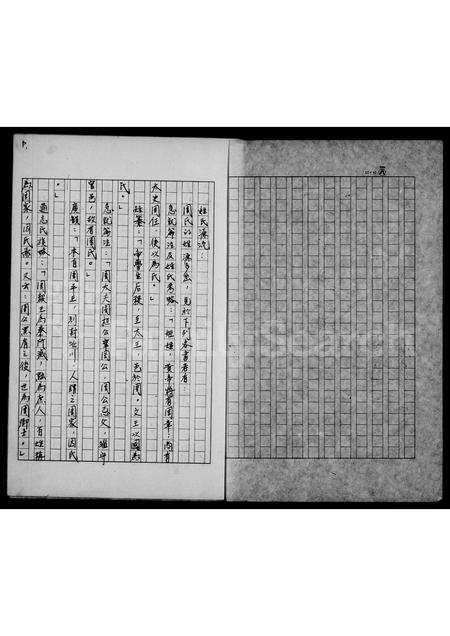 姓氏源流：
周氏的姓源多矣，見於下列各書者有：
急就篇注及姓氏考略：「姬姓，黃帝將有周章：商有
太史周任，後以為氏。」
姓纂：「帝嚳生后稷，至太王，邑於周。文王以國為
氏。」
急就篇注：「周大夫周桓公宰周公，周公忌父，繼守
官邑，故有周氏。」
廣韻：「本自周平王，別封汝川，人謂之周家，因氏
。」
通志氏族略：「周赧王為秦所滅，黜為庶人，百姓稱
為周家，因氏焉。又云：周公黑肩之後，世為周卿士。」